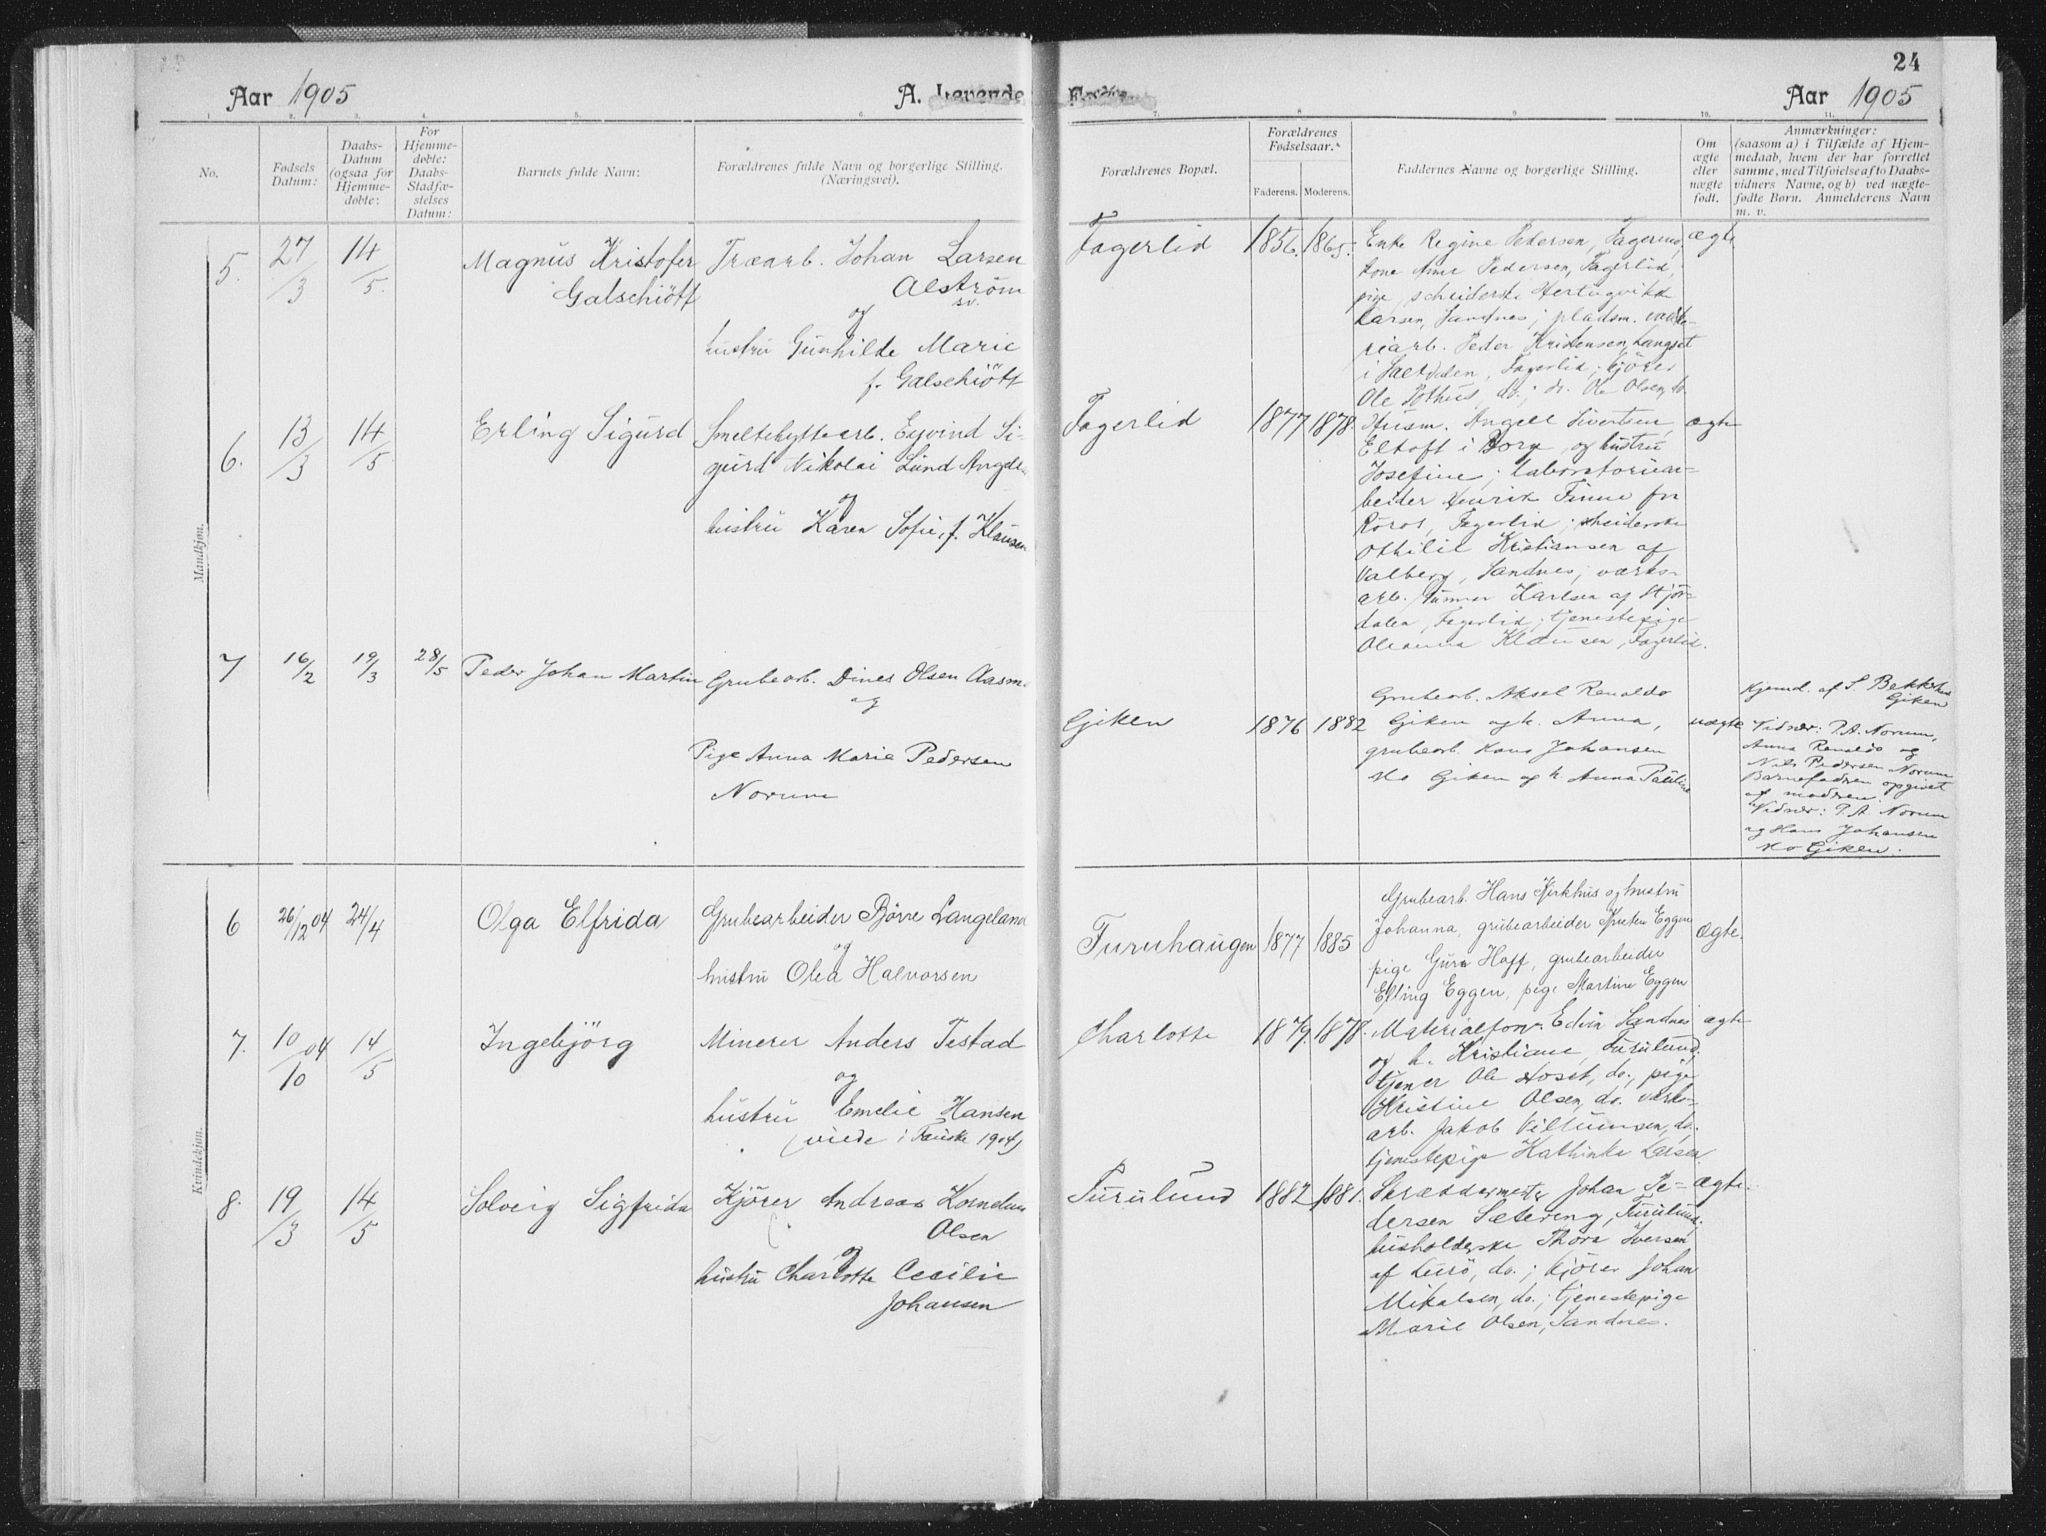 24
Aar 1905
A. Levende
Fødte.
Aar 1905
1. 2. 3. 4. 5. 6. 7. 8. 9. 10. 11.
No.
Fødsels Datum:
Daabs-Datum (ogsaa for Hjemme-døbte:
For Hjemme-døbte: Daabs-Stadfæ-stelses Datum:
Barnets fulde Navn:
Forældrenes fulde Navn og borgerlige Stilling. (Næringsvei).
Forældrenes Bopæl.
Forældrenes Fødselsaar.
Faderens. Moderens.
Faddernes Navne og borgerlige Stilling.
Om ægte eller nægte født.
Anmærkninger:
(saasom a) i Tilfælde af Hjem-
medaab, hvem der har forrettet
samme, med Tilføielse af to Daabs-
vidners Navne, og b) ved nægte-
fødte Børn. Anmelderens Navn
m. v.
Mandkjøn.
5.
27/3
14/5.
Magnus Kristofer
Galschiött
Træarb. Johan Larsen
Alström
sv.
og
hustru Gunhilde Marie
f. Galschiött
Fagerlid
1856. 1865.
Enke Regine Pedersen, Fagermo,
kone Anne Pedersen, Fagerlid,
pige, scheiderske Hertugvikke
Larsen, Sandnes; pladsm.
Peder Kristensen Langset
i Saltdalen, Fagerlid; kjörer
Ole Pothus, do.; dr. Ole Olsen, do.
ægte
6.
13/3
14/5
Erling Sigurd
Smeltehyttearb. Eyvind Si-
gurd Nikolai Lund Angell
og
hustru Karen Sofie, f. Klausen
Fagerlid
1877 1878.
Husm. Angell Sivertsen,
Eltoft i Borg og hustru
Josefine; laboratoriear-
beider Henrik Finne fra
Röros, Fagerlid; scheiderske
Othilie Kristiansen af
Valberg, Sandnes; værks-
arb. Gunnar Karlsen af Stjör-
dalen, Fagerlid; tjenestepige
Oleanna Klausen, Fagerlid.
ægte
7
16/2
19/3
28/5
Peder Johan Martin
Grubearb. Dines Olsen Aasmo
og
Pige Anna Marie Pedersen
Norum
Giken
1876 1882
Grubearb. Aksel Renaldo
Giken og h. Anna,
grubearb. Hans Johansen
Mo Giken og h. Anna Pauline
uægte
Hjemd. af S. Bekkhus
Giken
Vidner: P. A. Norum,
Anna Renaldo og
Nils Pedersen Norum
Barnefadren opgivet
af modren.
Vidner: P. A. Norum
og Hans Johansen
Mo Giken.
Kvindekjøn.
6
26/12 04
24/4
Olga Elfrida
Grubearbeider Börre Langeland
og
hustru Olea Halvorsen
Furuhaugen
1877 1885
Grubearb. Hans Kirkhus og hustru
Johanna, grubearbeider Knuten Eggen
pige Gura Hoff, grubearbeider
Elling Eggen, pige Martine Eggen
Ægte.
7.
10/10 04
14/5
Ingebjörg
Minerer Anders Testad
og
hustru Emelie Hansen
(viede i Fauske 1904)
Charlotte
1879. 1878.
Materialforv. Edvin Sandnes
og h. Kristiane, Furulund;
tjener Ole Hoset, do., pige
Kristine Olsen, do. værks-
arb. Jakob Villumsen, do.
tjenestepige Kathinka Larsen.
ægte
8.
19/3
14/5
Solveig Sigfrida
Kjörer Andreas Kornelius
Olsen
og
hustru Charlotte Cecilie
Johansen
Furulund
1882 1881.
Skræddermester Johan Pe-
dersen Setering, Furulund;
husholderske Thora Iversen
af Lurö, do.; kjörer Johan
Mikalsen, do.; tjenestepige
Marie Olsen, Sandnes.
ægte.